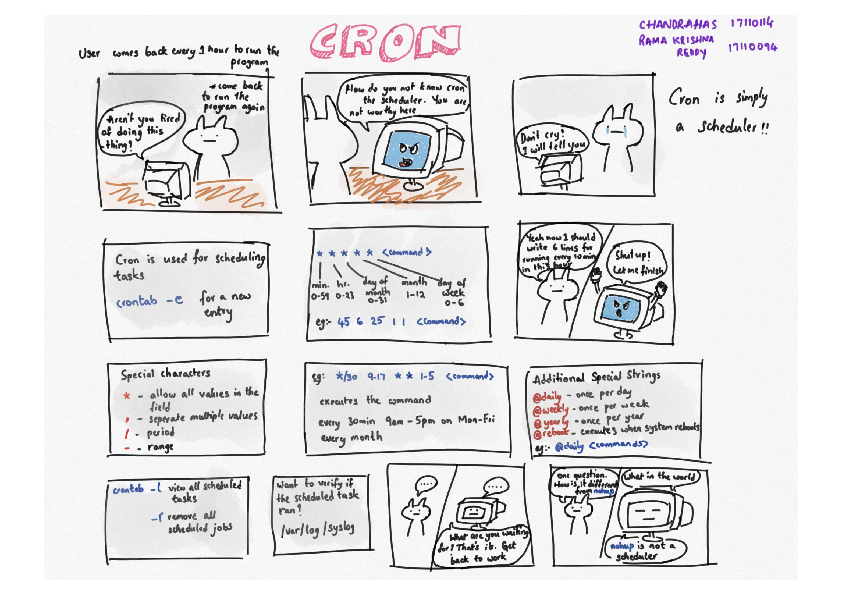 CRON
CHANDRAHAS 17110114
RAMA KRISHNA
REDDY 17110094
User comes back every 1 hour to run the
program
→ come back
to run the
program again
Aren't you tired
of doing this
thing?
How do you not know cron
the scheduler. You are
not worthy here
Don't cry!
I will tell you
Cron is simply
a scheduler!!
Cron is used for scheduling
tasks
crontab -e for a new
entry
* * * * * <command>
min. hr. day of month month day of week
0-59 0-23 0-31 1-12 0-6
eg:- 45 6 25 1 1 <command>
Yeah now I should
write 6 lines for
running every 10 min
in this hour
Shut up!
Let me finish
Special characters
* - allow all values in the
field
, - seperate multiple values
/ - period
- - range
eg: */30 9-17 * * 1-5 <command>
executes the command
every 30min 9am - 5pm on Mon-Fri
every month
Additional Special Strings
@daily - once per day
@weekly - once per week
@yearly - once per year
@reboot - executes when system reboots
eg:- @daily <commands>
crontab -l view all scheduled
tasks
-r remove all
scheduled jobs
want to verify if
the scheduled task
ran?
/var/log/syslog
....
....
What are you waiting
for? That's it. Get
back to work
one question.
How is it different
from nohup
What in the world
nohup is not a
scheduler